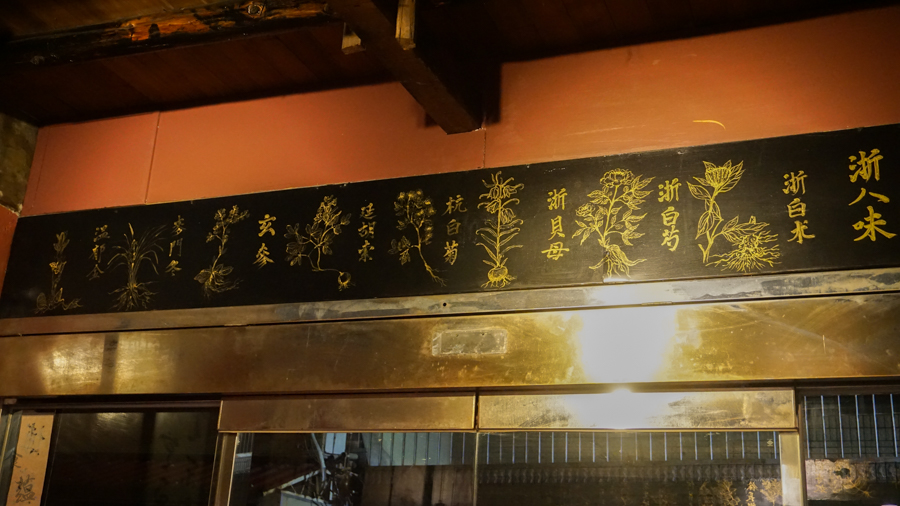 浙八味
浙白术
浙白芍
浙贝母
杭白菊
延胡索
玄参
麦门冬
温郁金